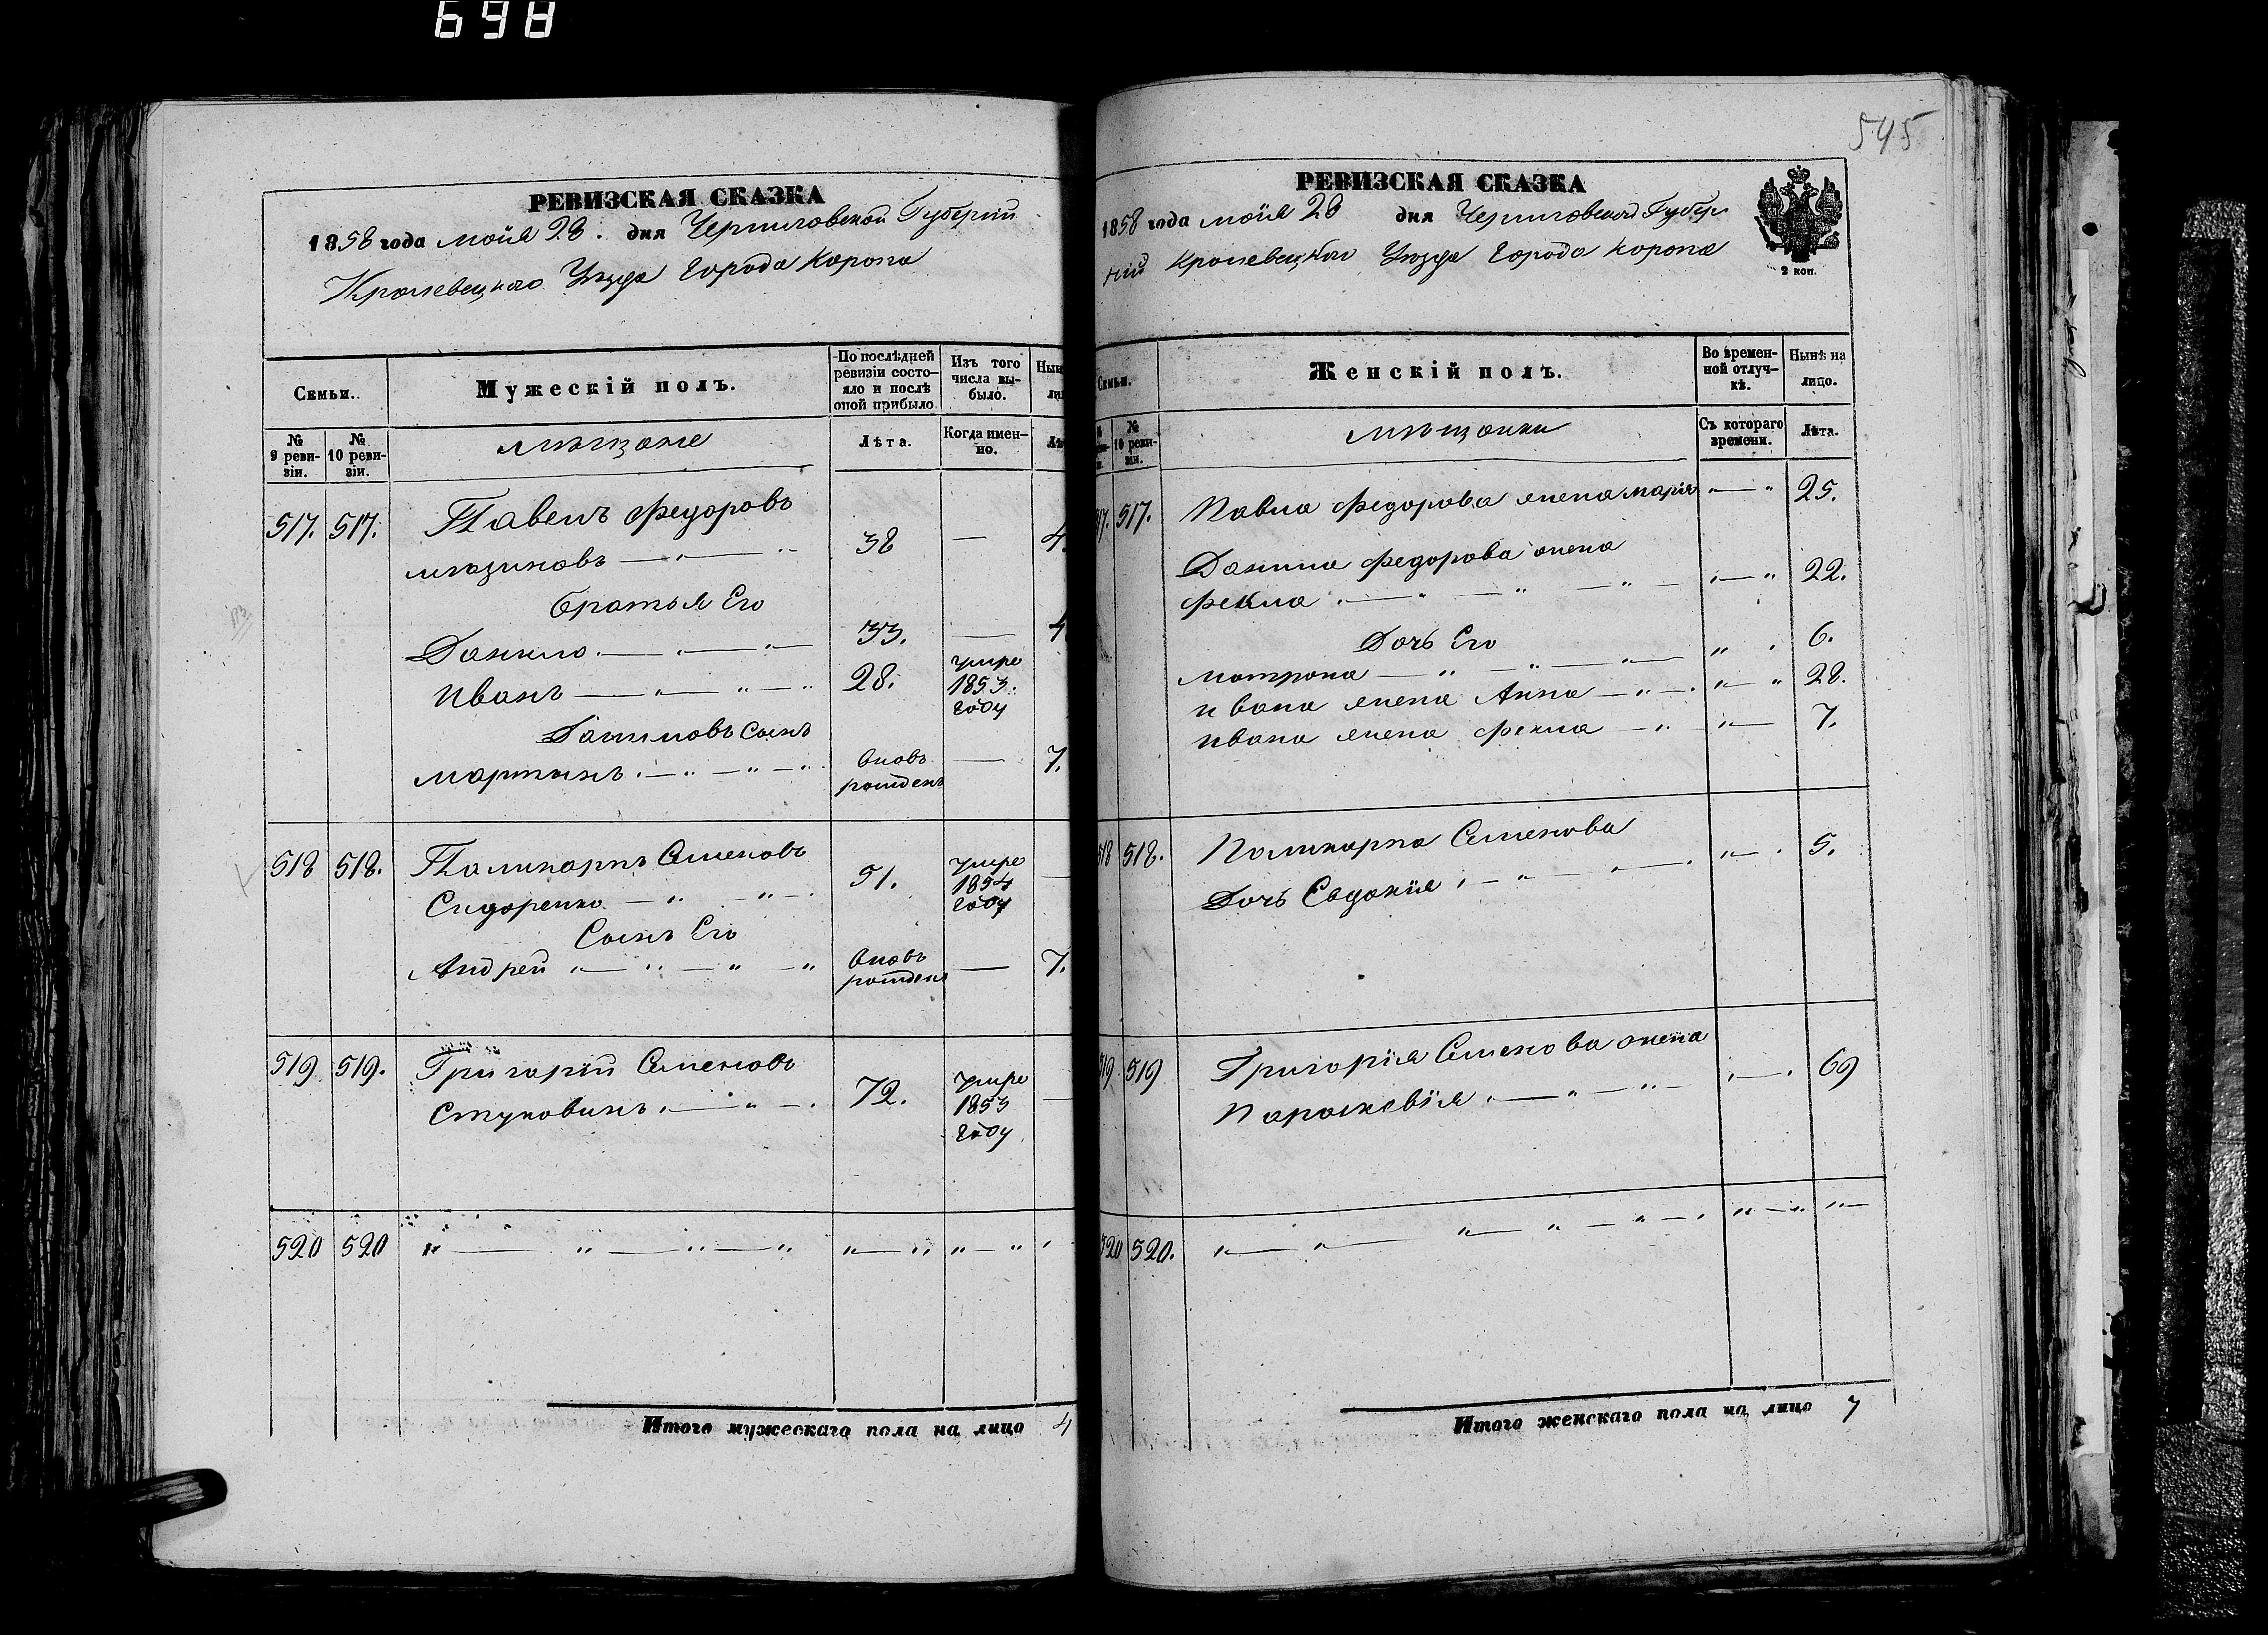 698
РЕВИЗСКАЯ СКАЗКА
1858 года моія 28. дня Черниговской Губерніи
Кролевецкаго Уѣзда Города Коропа
Семьи.
Мужескій полъ.
По послѣдней ревизіи состо-
яло и послѣ
оной прибыло.
Изъ того
числа вы-
было.
№
9 реви-
зіи.
№
10 реви-
зіи.
мѣщане
Лѣта.
Когда имен-
но.
517. 517. Павелъ Федоровъ
38 —
Братья Его
Данило 33. —
Иванъ 28. умре
1853.
году
Даниловъ Сынъ
Мартынъ вновь
рожденъ — 7.
518 518. Поликарпъ Семеновъ
Сидоренко 51. умре
1854
году
Сынъ Его
Андрей вновь
рожденъ — 7.
519 519. Григорій Семеновъ
Стуковинъ 72. умре
1853
году
520 520
Итого мужескаго пола на лицо 4
545
РЕВИЗСКАЯ СКАЗКА
1858 года моія 28 дня Черниговской Губер
ніи Кролевецкаго Уѣзда Города Коропа
2 коп.
Семьи.
Женскій полъ.
Во времен-
ной отлуч-
кѣ.
Нынѣ на
лицо.
№
10 реви-
зіи.
мѣщанки
Съ котораго
времени.
Лѣта.
517. Павла Федорова жена Марія 25.
Данила Федорова жена
Фекла 22.
Дочь Его
Матрона 6.
Ивана жена Анна 28.
Ивана жена Фекла 7.
518 518. Поликарпа Семенова
Дочь Евдокія 5.
519 519 Григорія Семенова жена
Параскевія 69
520 520.
Итого женскаго пола на лицо 7